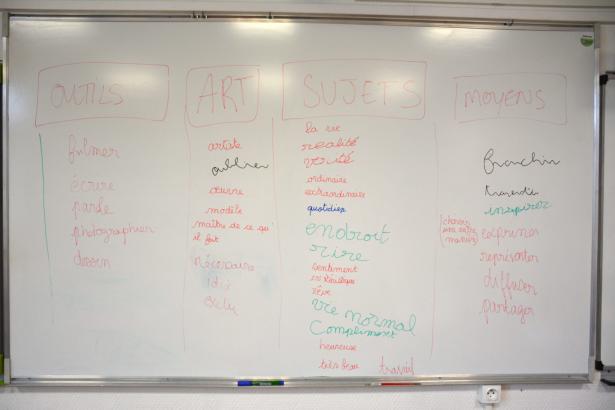 OUTILS
filmer
écrire
parle
photographier
dessin
ART
artiste
oublier
œuvre
modèle
maître de ce qu'
il fait
nécessaire
idée
SUJETS
la vie
réalité
vérité
ordinaire
extraordinaire
quotidien
endroit
rire
sentiment
rêve
vie normal
Compliment
heureuse
très beau
travail
MOYENS
franchir
transmettre
inspirer
exprimer
représenter
diffuser
partager